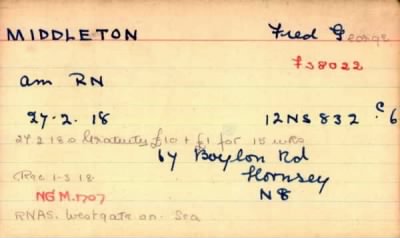 MIDDLETON Fred George
F38022
am RN
27-2.18 12NS 832 C6
27.2.18 a Gratuity £10 + £1 for 15 wks
64 Boylon Rd
(Page 1-3 18 Hornsey
NG M.1707 N8
RNAS. Westgate on Sea